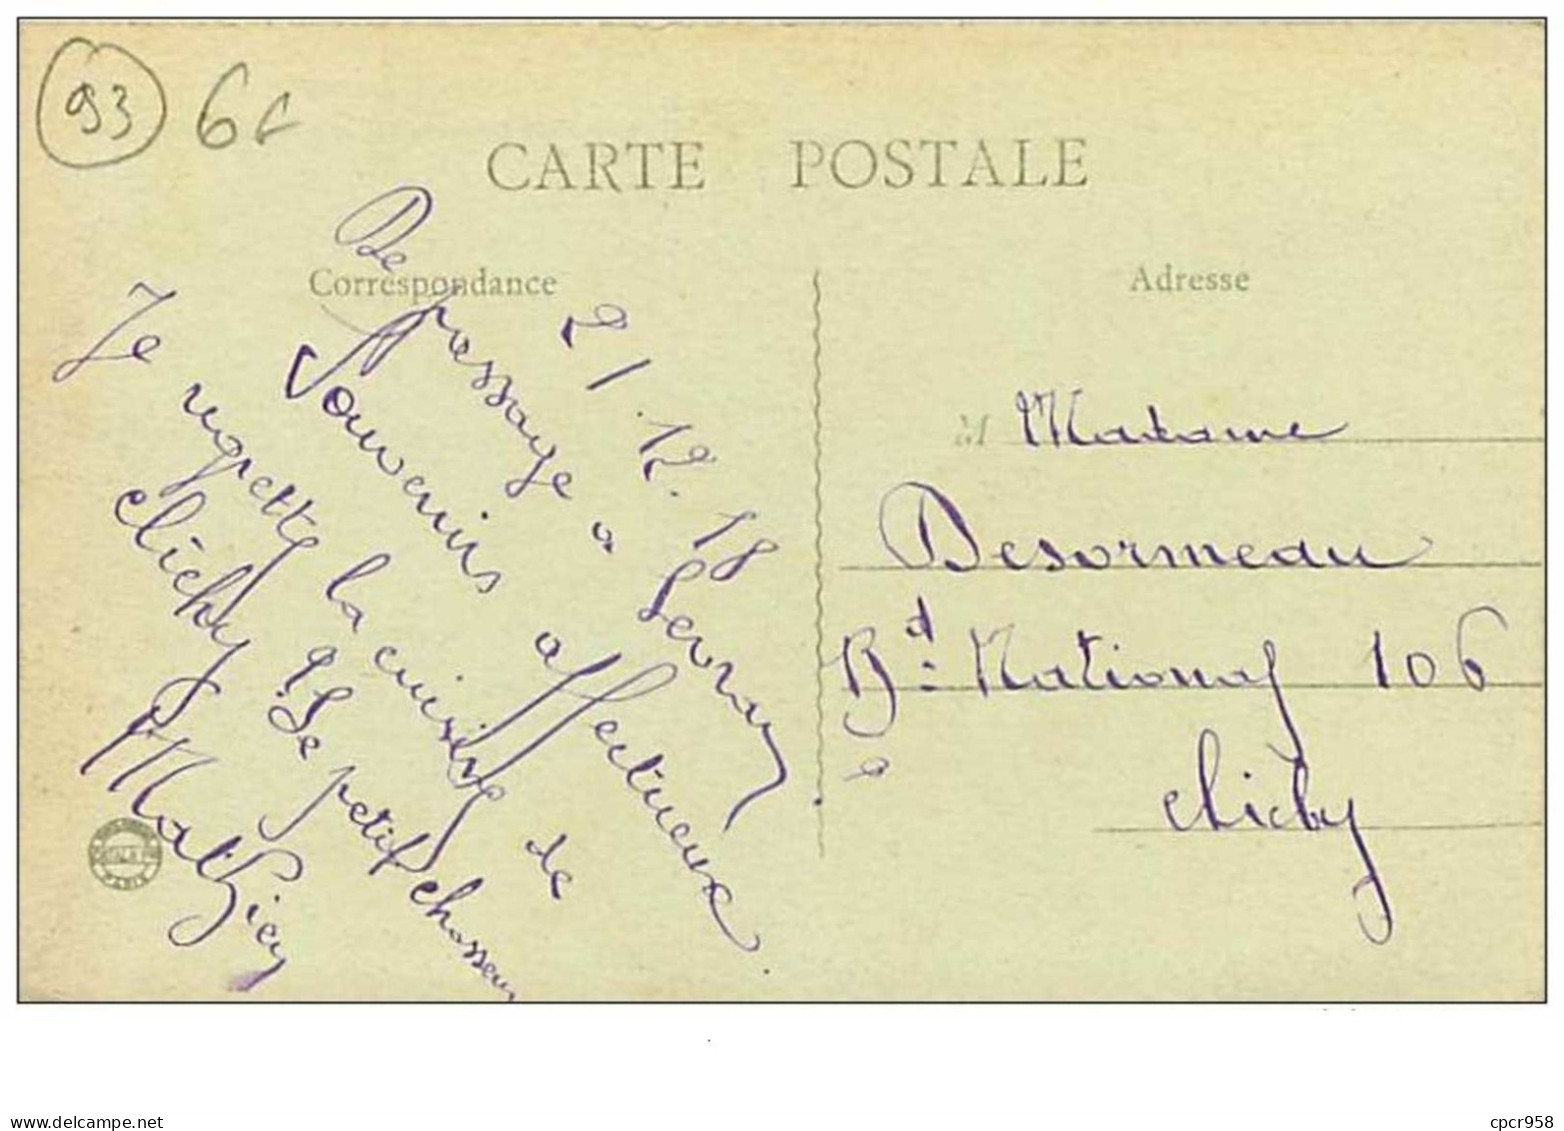 93 6f
CARTE POSTALE
Correspondance
Adresse
21.12.18
De passage a Sevran
Souvenirs affectueux.
Je regrette la cuisine de
Clichy
Le petit chasseur
Mathieu
M Madame
Desormeau
Bd National 106
a
Clichy
PARIS
www.delcampe.net
cpcr958